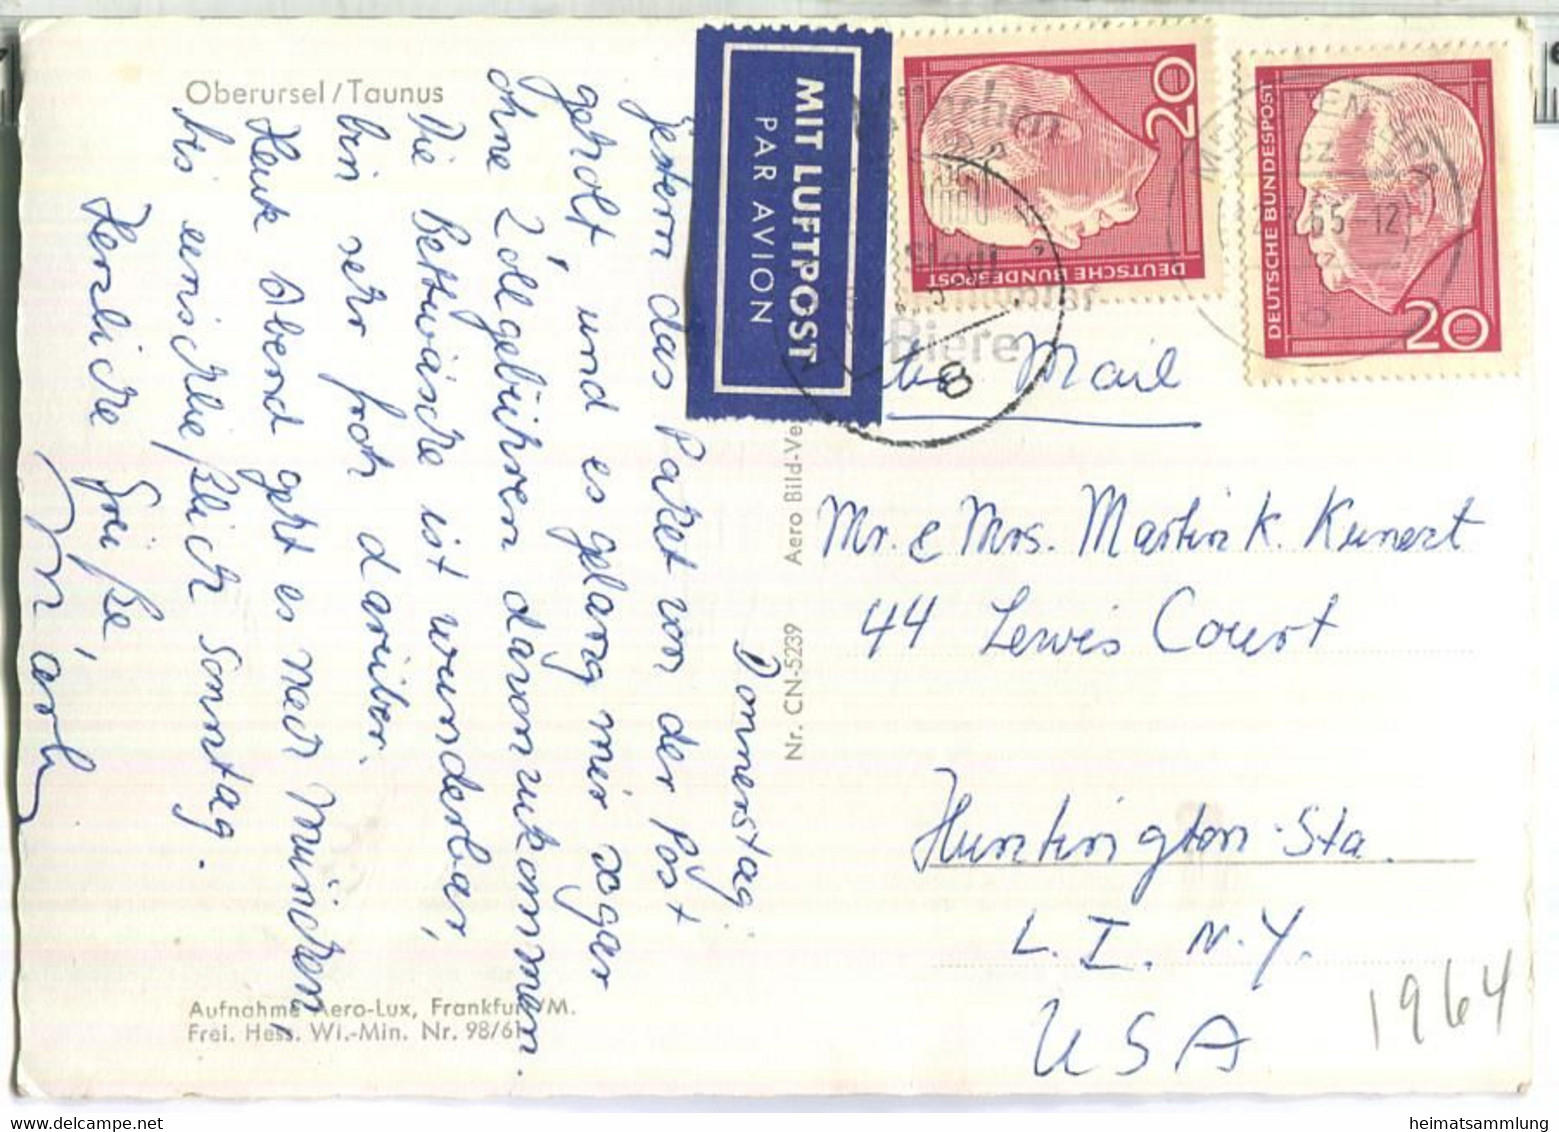 Oberursel/Taunus
Donnerstag
gestern das Paket von der Post
geholt und es gelang mir sogar
ohne Zollgebühren davonzukommen.
Die Bettwäsche ist wunderbar,
bin sehr froh darüber.
Heute Abend geht es nach München,
bis einschließlich Sonntag.
Herzliche Grüße
Aufnahme Aero-Lux, Frankfurt/M.
Frei. Hess. Wi.-Min. Nr. 98/61
Nr. CN-5239 Aero Bild-Ve
MIT LUFTPOST
PAR AVION
20
DEUTSCHE BUNDESPOST
20
DEUTSCHE BUNDESPOST
München
Stadt
Biere
65-12
8
8
Mail
Mr. & Mrs. Martin K. Kunert
44 Lewis Court
Huntington Sta.
L. I. N.Y.
USA
1964
heimatsammlung
www.delcampe.net